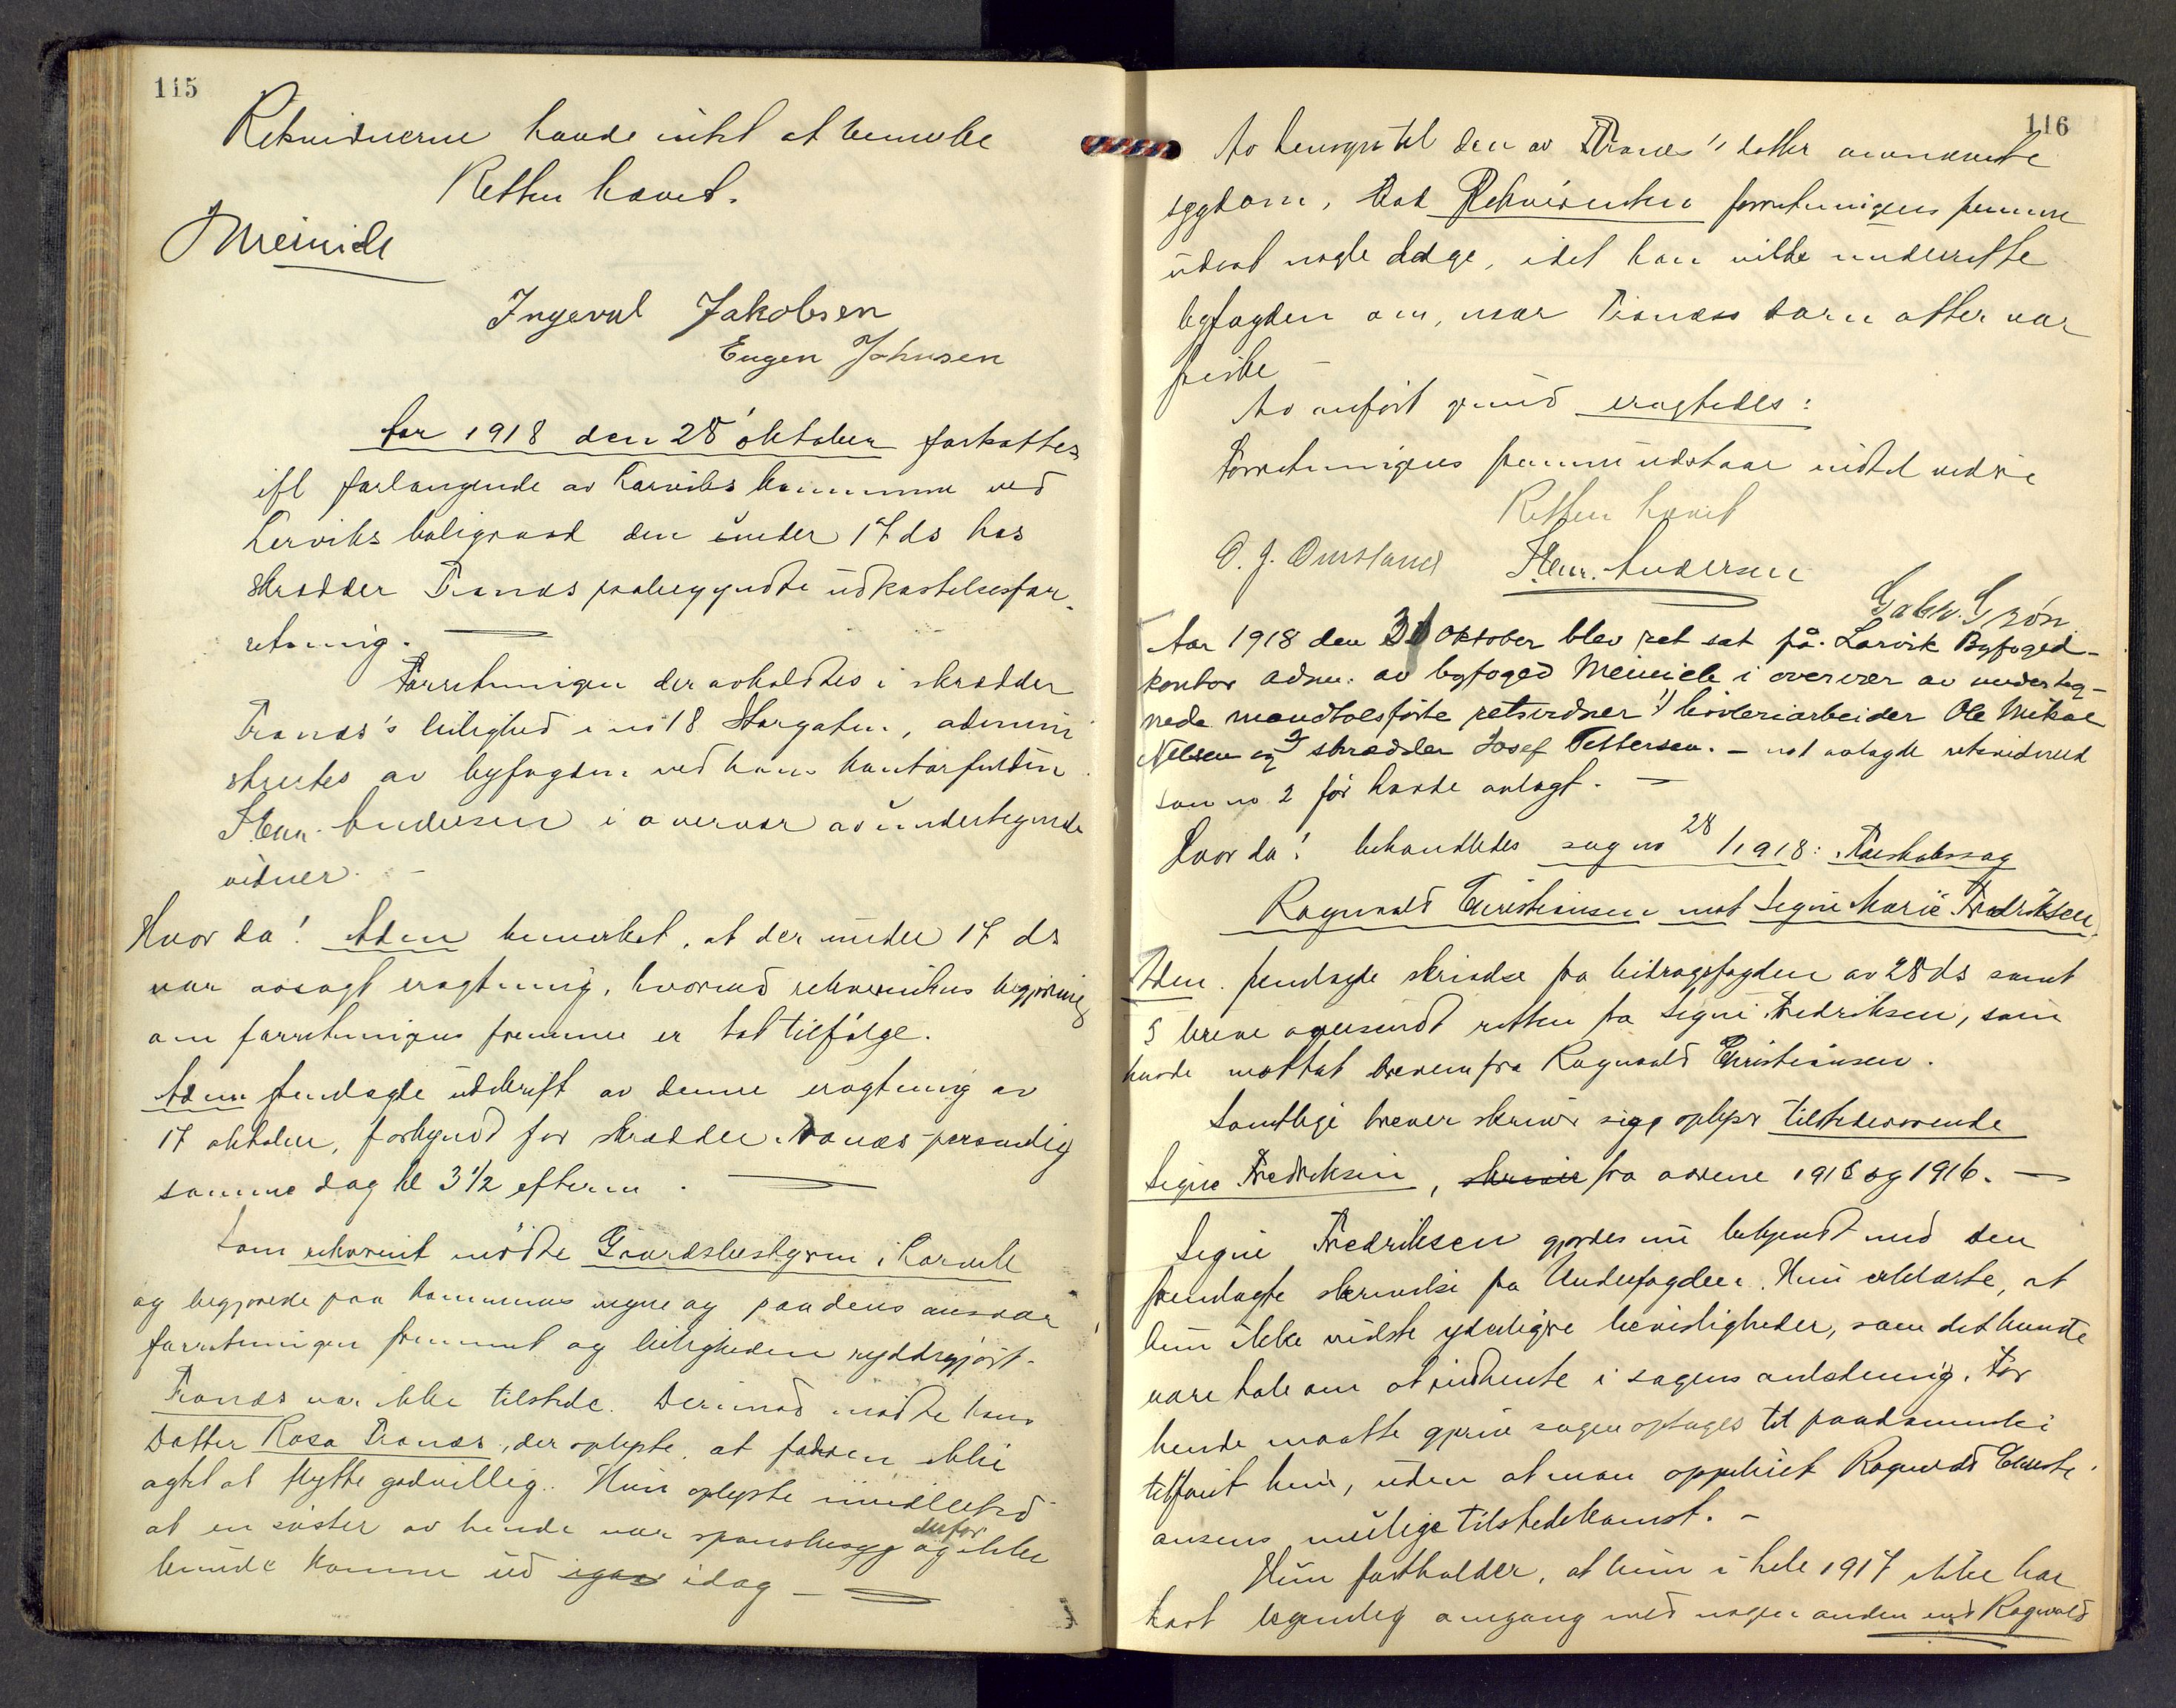 115
Retsvidnerne havde intet at bemerke
Retten hævet.
Meinich
Ingevul Jakobsen
Eugen Johnsen
Aar 1918 den 28 oktober fortsattes
ifl forlangende av Larviks kommune ved
Larviks boligraad den under 17 ds hos
skrædder Tranæs paabegyndte utkastelsesfor-
retning.
Forretningen der avholdtes i skrædder
Tranæs's leilighed i no 18 Storgaten, admini
streertes av byfogden ved hans kontorfuldm.
Henr. Andersen i overvær av undertegnede
vidner. —
Hvor da! Adm bemerket, at der under 17 ds
var avsagt eragtning, hvorved rekvirentens begjæring
om forretningens fremme er tat tilfølge.
Adm fremlagde utskrift av denne eragtning av
17 oktober, forkyndt for skrædder Tranæs personlig
samme dag kl 3 1/2 efterm.
Som rekvirent mødte Gaardsbestyreren i Larvik
og begjærede paa kommunens vegne og paa dens ansvar
forretningen fremmet og leiligheden ryddiggjort.
Tranæs var ikke tilstede. Derimod mødte hans
Datter Rosa Tranæs, der oplyste, at faderen ikke
agtet at flytte godvillig. Hun oplyste imidlertid
at en søster av hende var spansksyg og derfor ikke
kunde komme ud igaar idag —
116
Av hensyn til den av Tranæs's datter anmerkede
sygdom, bad Rekvirenten forretningens fremme
udsat nogle dage, idet han vilde underrette
byfogden om, naar Tranæs barn atter var
friske —
Av anført grund eragtedes:
Forretningens fremme udstaar indtil videre
Retten hævet
O. J. Omsland Henr. Andersen
Gabr. Grøn
Aar 1918 den 31 oktober blev ret sat på Larvik Byfoged-
kontor adm. av byfoged Meinich i overvær av underteg-
nede mandtalsførte retsvidner 1) høvleriarbeider Ole Mikal
Nilsen og 2) skrædder Josef Pettersen. — no 1 avlagde retsvidneed
som no 2 før havde avlagt. —
Hvor da! behandledes sag no 28/1918: Farskabssag
Ragnvald Christiansen mot Signe Marie Fredriksen.
Adm. fremlagde skrivelse fra bidragsfogden av 28 ds samt
5 breve oversendt retten fra Signe Fredriksen, som
havde mottat brevene fra Ragnvald Christiansen.
Samtlige breve skriver sig, oplyser tilstedeværende
Signe Fredriksen, skriver fra aarene 1915 og 1916. —
Signe Fredriksen gjordes nu bekjendt med den
fremlagte skrivelse fra Underfogden. Hun erklærte, at
hun ikke vidste yderligere bevisligheder, som det kunde
være tale om at indhente i sagens anledning. For
hende maatte gjerne sagen optages til paadømmelse
tilføiet hun, uden at man oppebiet Ragnvald Christi-
ansens mulige tilstedekomst. —
Hun fastholder, at hun i hele 1917 ikke har
havt legemlig omgang med nogen anden end Ragnvald